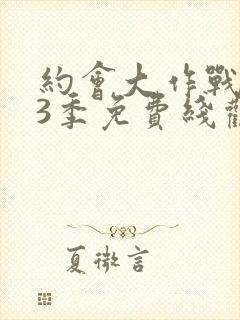 約會大作戰
3季免費綫觀
夏微言